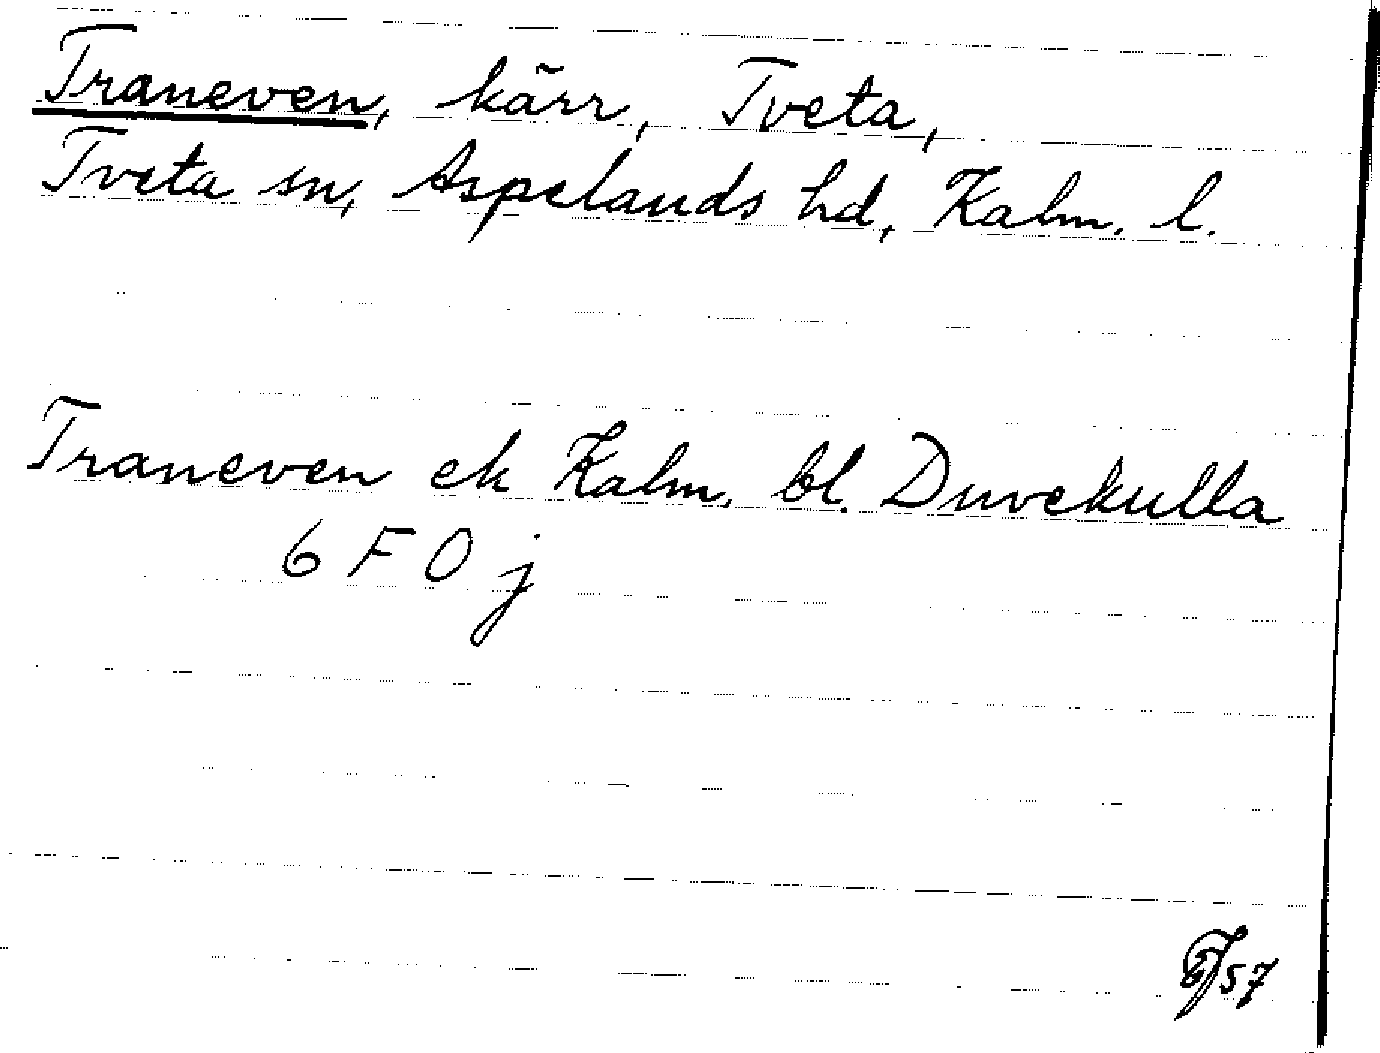 Traneven, kärr, Tveta,
Tveta sn, Aspelands hd, Kalm. l.
Traneven ek Kalm. bl. Duvekulla
6 F 0 j
57